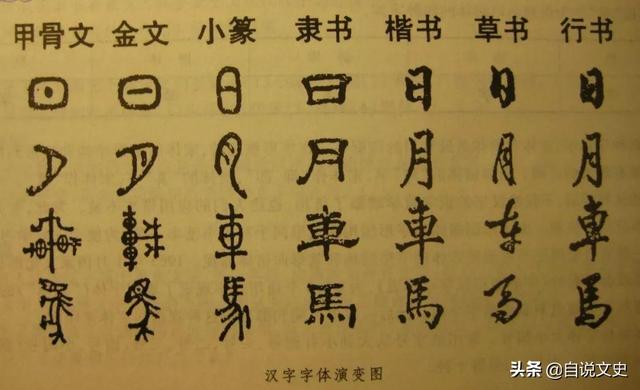 甲骨文 金文 小篆 隶书 楷书 草书 行书
日 日 日 日 日 日 日
月 月 月 月 月 月 月
車 車 車 車 車 车 車
馬 馬 馬 馬 馬 马 馬
汉字字体演变图
头条 @自说文史